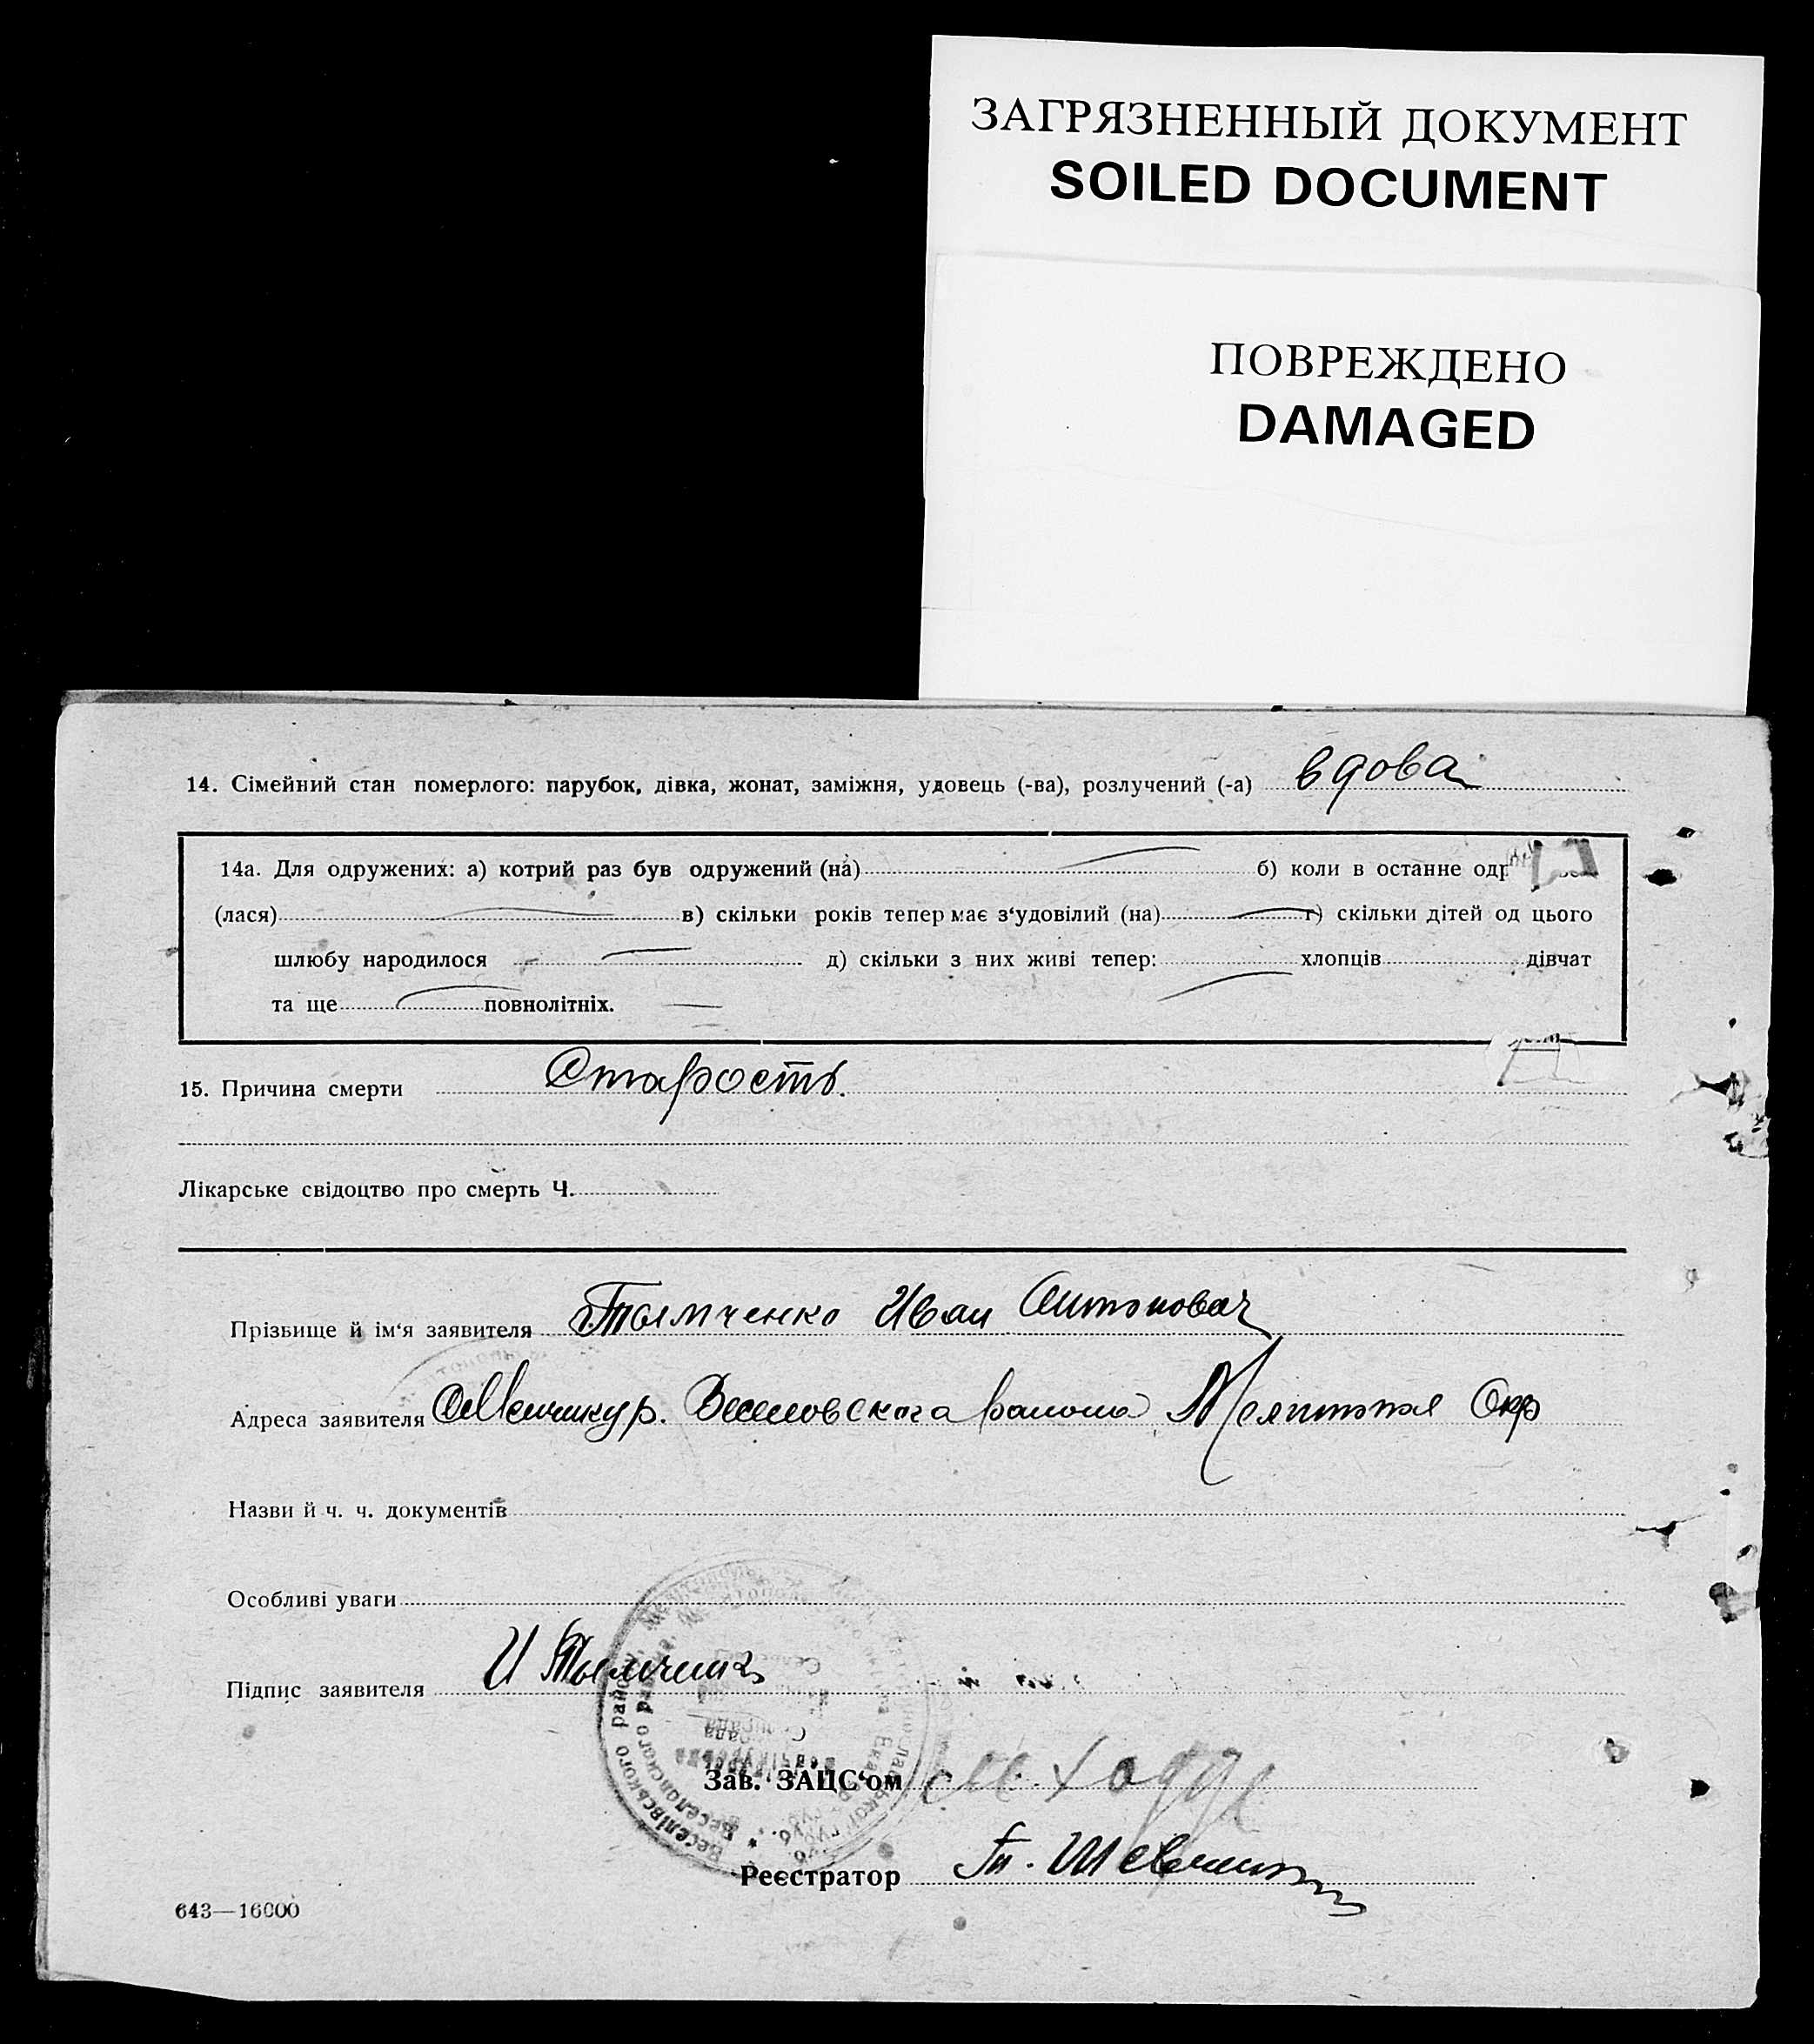 ЗАГРЯЗНЕННЫЙ ДОКУМЕНТ
SOILED DOCUMENT
ПОВРЕЖДЕНО
DAMAGED
14. Сімейний стан померлого: парубок, дівка, жонат, заміжня, удовець (-ва), розлучений (-а) вдова
14а. Для одружених: а) котрий раз був одружений (на) б) коли в останне одр
(лася) в) скільки років тепер має з‘удовілий (на) г) скільки дітей од цього
шлюбу народилося д) скільки з них живі тепер: хлопців дівчат
та ще повнолітніх.
15. Причина смерти Старость.
Лікарське свідоцтво про смерть Ч.
Прізвище й ім‘я заявителя Тымченко Иван Антонович
Адреса заявителя Веселовского района Окр
Назви й ч. ч. документів
Особливі уваги
Підпис заявителя И Тымченко
Зав. ЗАЦС‘ом
Реєстратор Шевченко
643—16000